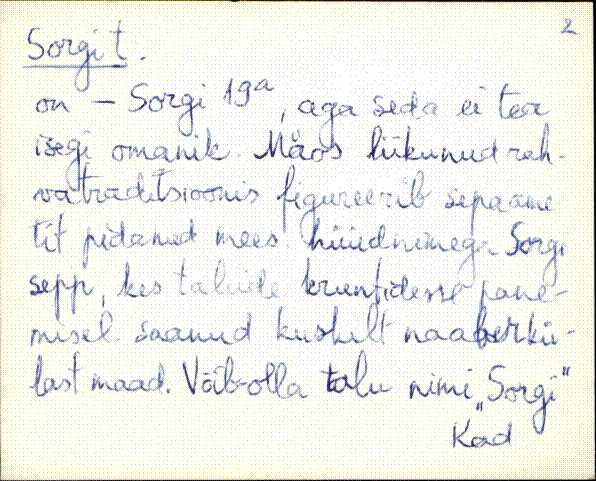 2
Sorgi t.
on – Sorgi 19a, aga seda ei tea
isegi omanik. Mäos liikunud rah-
vatraditsioonis figureerib sepaame
tit pidanud mees hüüdnimega Sorgi
sepp, kes talude kruntidesse pane-
misel saanud kuskilt naaberkü-
last maad. Võib-olla talu nimi „Sorgi”
Kad